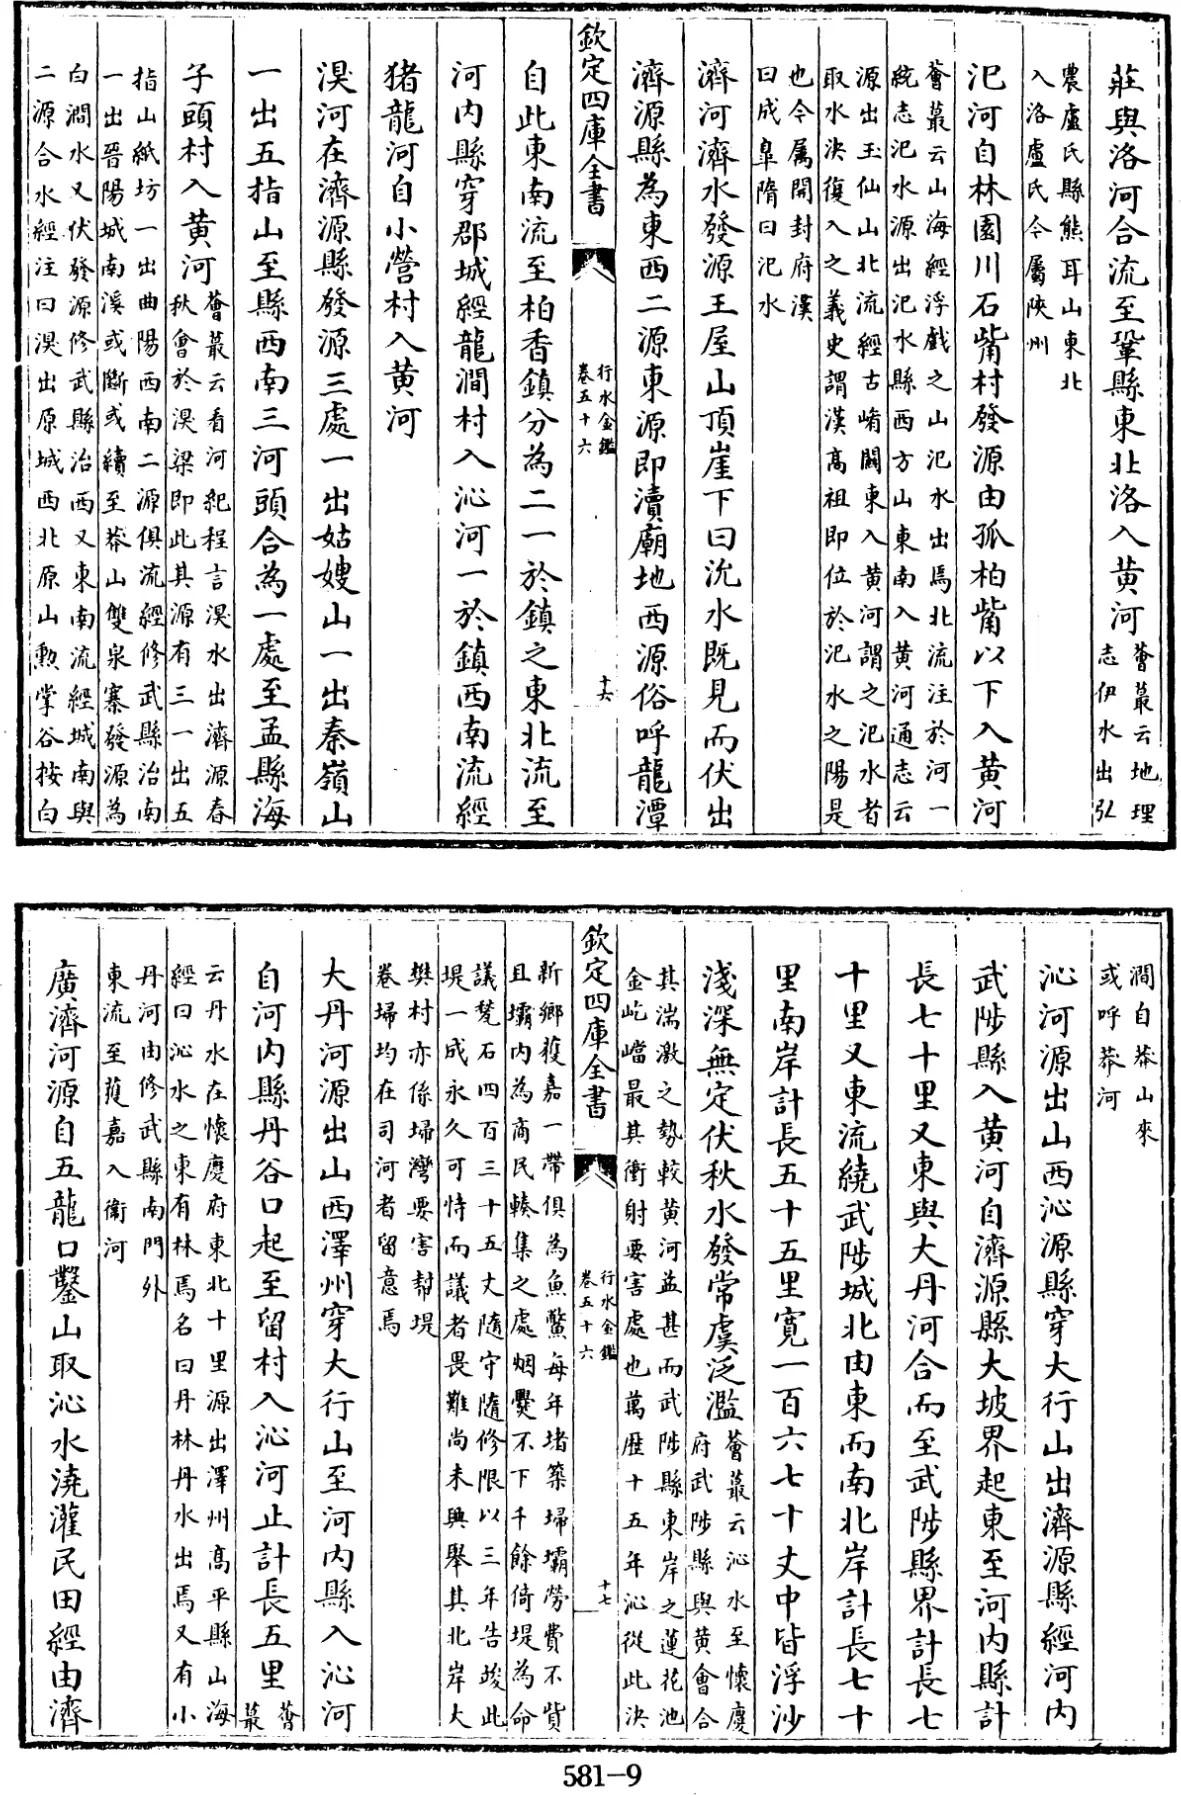 莊與洛河合流至鞏縣東北洛入黄河
薈蕞云地理
志伊水出弘
農盧氏縣熊耳山東北
入洛盧氏今屬陜州
汜河自林園川石觜村發源由孤柏觜以下入黄河
薈蕞云山海經浮戲之山汜水出焉北流注於河一
統志汜水源出汜水縣西方山東南入黄河通志云
源出玉仙山北流經古崤關東入黄河謂之汜水者
取水決復入之義史謂漢高祖即位於汜水之陽是
也今属開封府漢
曰成臯隋曰汜水
濟河濟水發源王屋山頂崖下曰沇水既見而伏出
濟源縣為東西二源東源即瀆廟地西源俗呼龍潭
欽定四庫全書
行水金鑑
卷五十六
十六
自此東南流至柏香鎮分為二一於鎮之東北流至
河内縣穿郡城經龍澗村入沁河一於鎮西南流經
猪龍河自小營村入黄河
湨河在濟源縣發源三處一出姑嫂山一出秦嶺山
一出五指山至縣西南三河頭合為一處至孟縣海
子頭村入黄河
薈蕞云看河紀程言湨水出濟源春
秋會於湨梁即此其源有三一出五
指山紙坊一出曲陽西南二源俱流經修武縣治南
一出晋陽城南溪或斷或續至莽山雙泉寨發源為
白澗水又伏發源修武縣治西又東南流經城南與
二源合水經注曰湨出原城西北原山勲掌谷按白
澗自莽山來
或呼莽河
沁河源出山西沁源縣穿大行山出濟源縣經河内
武陟縣入黄河自濟源縣大坡界起東至河内縣計
長七十里又東與大丹河合而至武陟縣界計長七
十里又東流繞武陟城北由東而南北岸計長七十
里南岸計長五十五里寛一百六七十丈中皆浮沙
淺深無定伏秋水發常虞泛濫
薈蕞云沁水至懷慶
府武陟縣與黄會合
其湍激之勢較黄河益甚而武陟縣東岸之蓮花池
金屹嵣最其衝射要害處也萬歴十五年沁從此決
欽定四庫全書
行水金鑑
卷五十六
十七
新鄉獲嘉一帶俱為魚鱉每年堵築埽壩勞費不貲
且壩内為商民輳集之處烟爨不下千餘倚堤為命
議甃石四百三十五丈隨守隨修限以三年告竣此
堤一成永久可恃而議者畏難尚未興舉其北岸大
樊村亦係埽灣要害幇堤
卷埽均在司河者留意焉
大丹河源出山西澤州穿大行山至河内縣入沁河
自河内縣丹谷口起至留村入沁河止計長五里
薈
蕞
云丹水在懷慶府東北十里源出澤州高平縣山海
經曰沁水之東有林焉名曰丹林丹水出焉又有小
丹河由修武縣南門外
東流至獲嘉入衛河
廣濟河源自五龍口鑿山取沁水澆灌民田經由濟
581-9